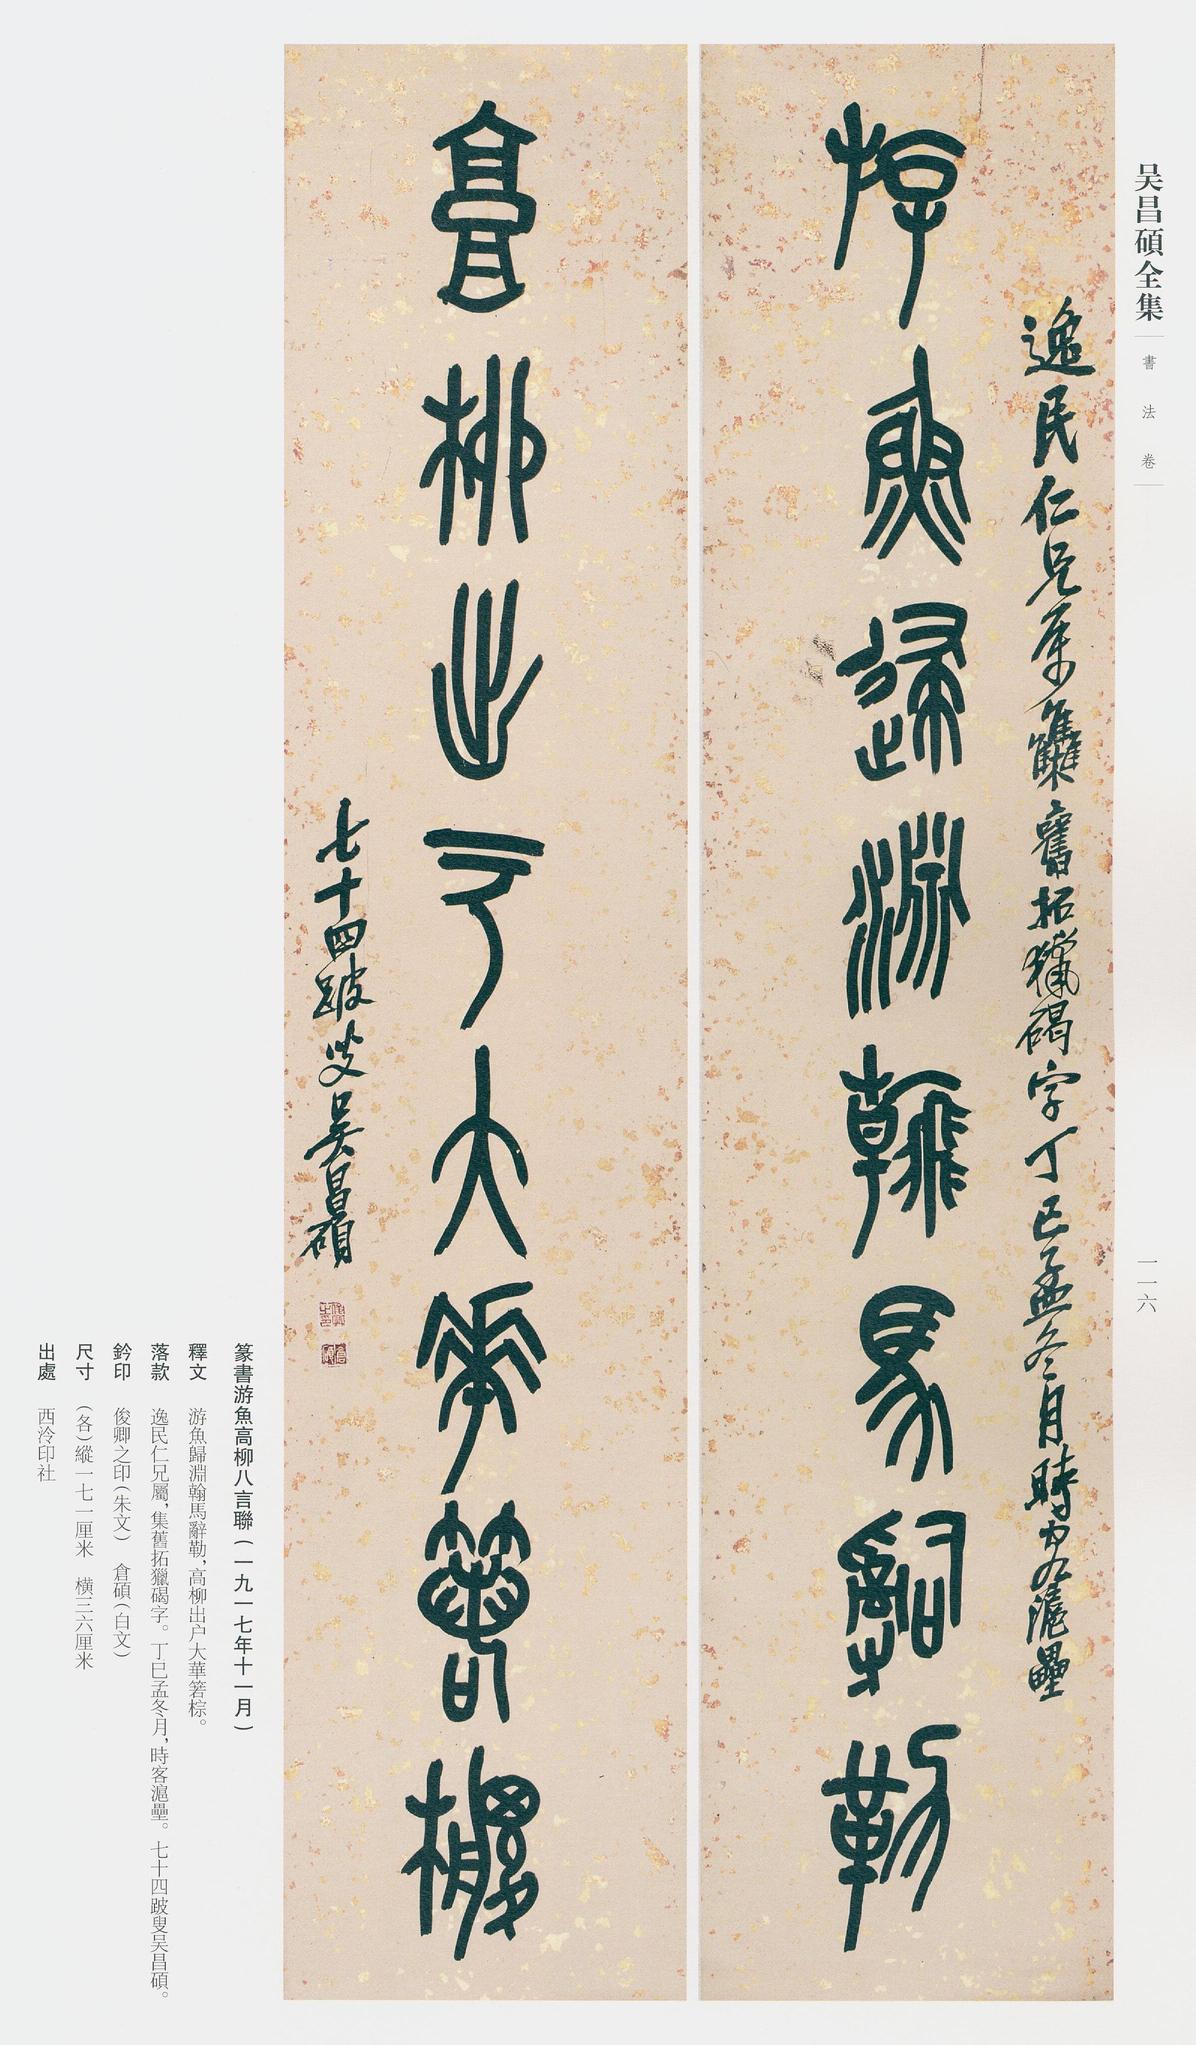 吴昌碩全集
書法卷
一一六
逸民仁兄屬集舊拓獵碣字丁巳孟冬月時客滬壘
游魚歸淵翰馬辭勒
高柳出户大華箬棕
七十四跛叟吴昌碩
俊卿之印
倉碩
篆書游魚高柳八言聯（一九一七年十一月）
釋文 游魚歸淵翰馬辭勒，高柳出户大華箬棕。
落款 逸民仁兄屬，集舊拓獵碣字。丁巳孟冬月，時客滬壘。七十四跛叟吴昌碩。
鈐印 俊卿之印（朱文） 倉碩（白文）
尺寸 （各）縱一七一厘米 橫三六厘米
出處 西泠印社